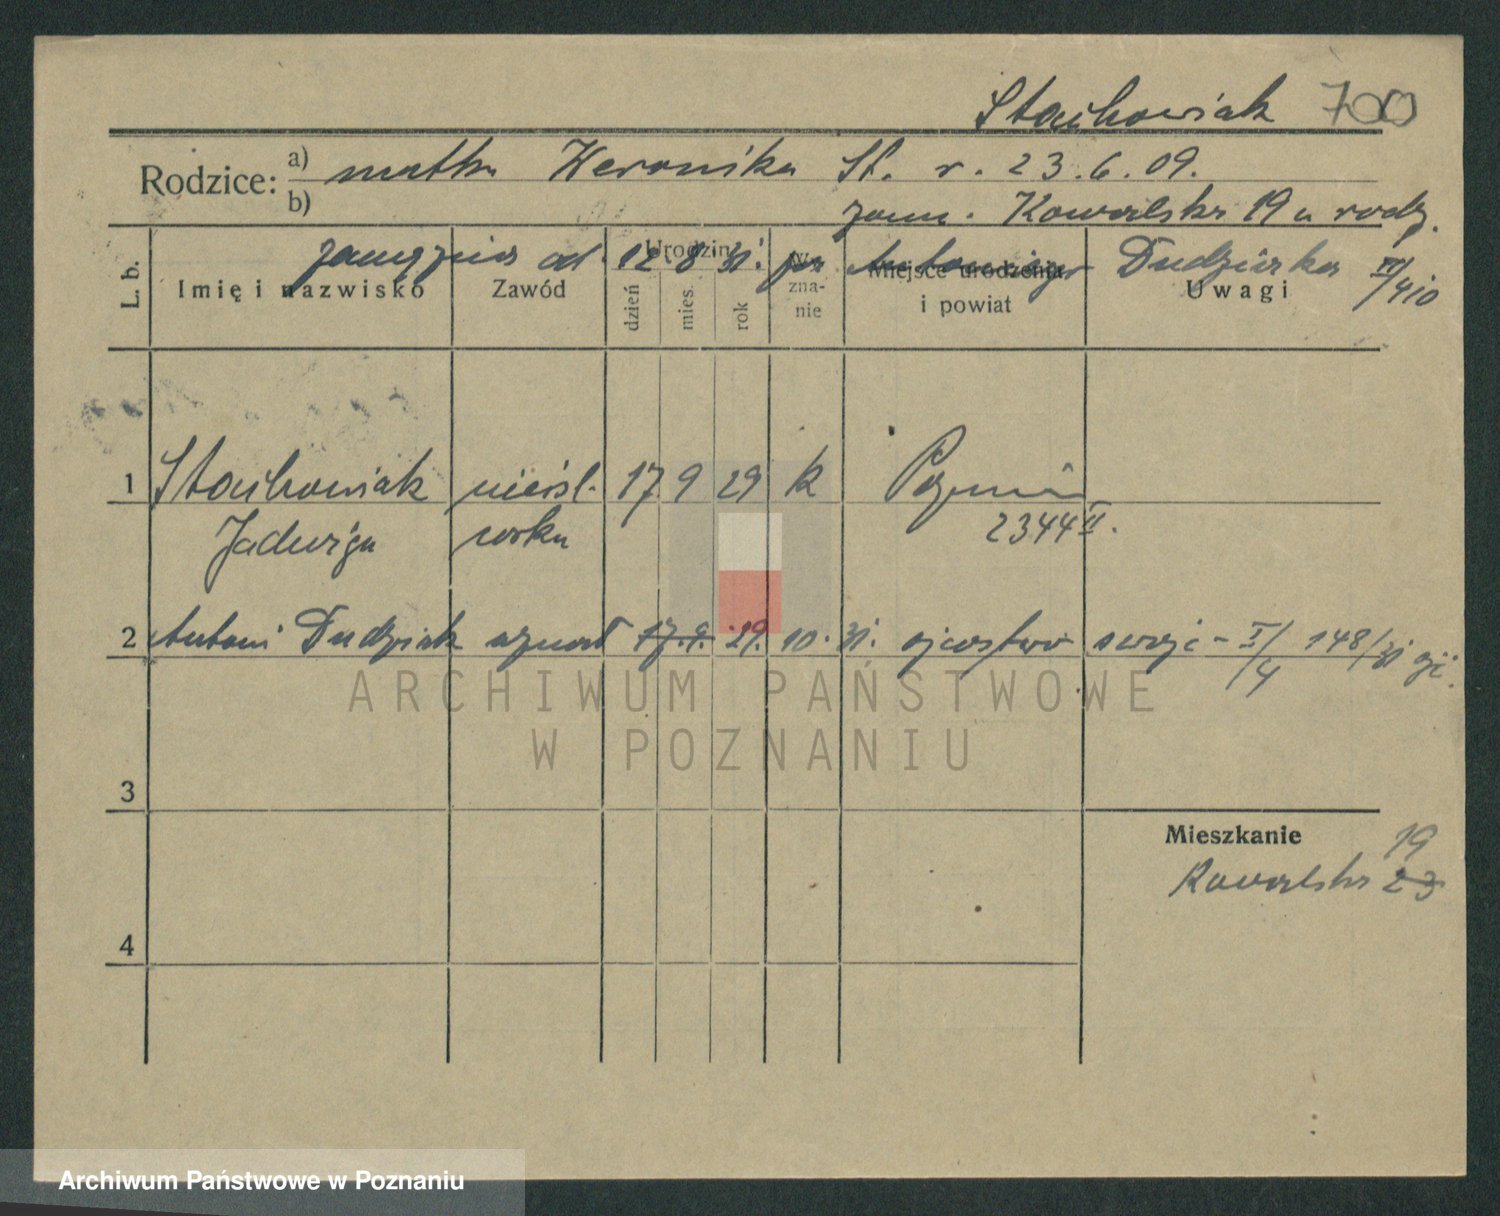 Stachowiak 700
Rodzice: a) matka Weronika St. r. 23.6.09.
b) zam. Kowalska 19 u rodz.
zamężna od 12 8 31. za Antoniego Dudziaka IV/410
L. b. Imię i nazwisko Zawód Urodzin dzień mies. rok Wyznanie Miejsce urodzenia i powiat Uwagi
1 Stachowiak nieśl. 17 9 29 k Poznań
Jadwiga córka 2344 II.
2 Antoni Dudziak uznał 17.9. 29. 10. 31. ojcostwo swoje - I/4 148/31
3
Mieszkanie 19
Kowalska 23
4
ARCHIWUM PAŃSTWOWE
W POZNANIU
Archiwum Państwowe w Poznaniu